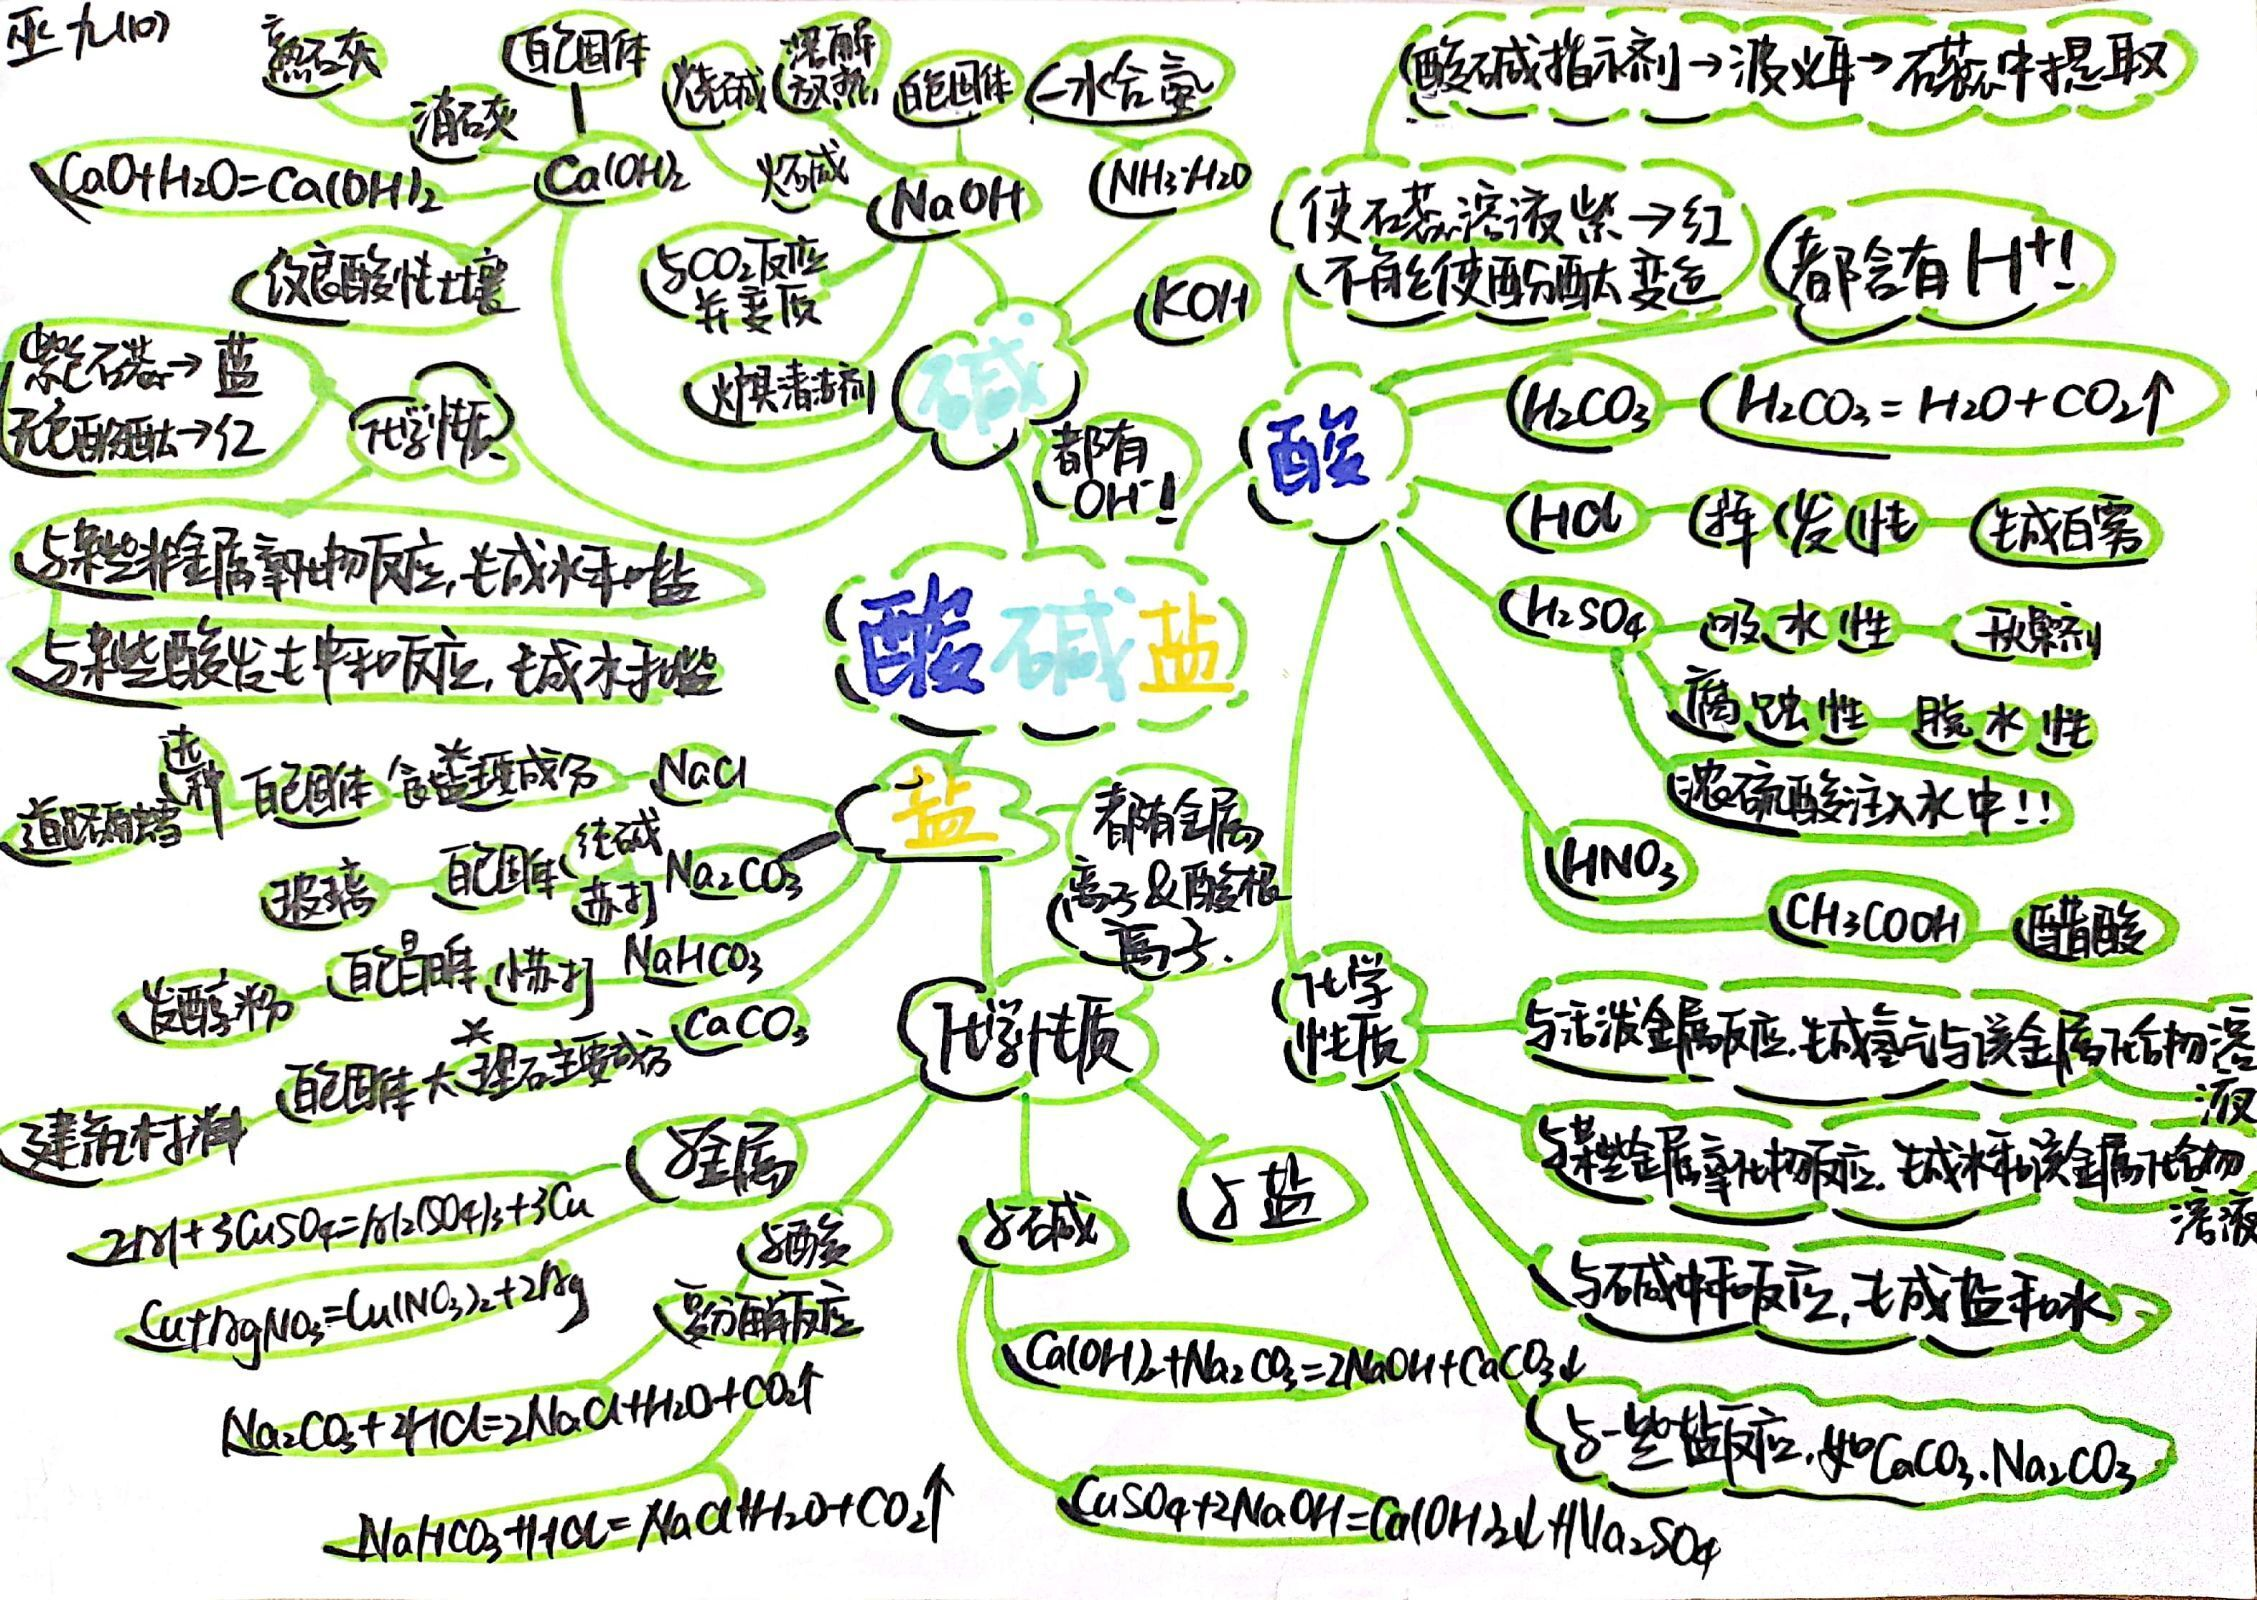 巫九(10)
熟石灰
消石灰
白色固体
CaO+H2O=Ca(OH)2
Ca(OH)2
改良酸性土壤
烧碱
溶解
放热
白色固体
火碱
NaOH
与CO2反应
并变质
炉具清洁剂
一水合氨
NH3·H2O
KOH
碱
都有
OH-!
化学性质
紫色石蕊→蓝
无色酚酞→红
与某些非金属氧化物反应,生成水和盐
与某些酸发生中和反应,生成水和盐
酸碱盐
酸碱指示剂→波义耳→石蕊中提取
使石蕊溶液紫→红
不能使酚酞变色
都含有H+!
酸
H2CO3
H2CO3=H2O+CO2↑
HCl
挥发性
生成白雾
H2SO4
吸水性
干燥剂
腐蚀性
脱水性
浓硫酸注入水中!!
HNO3
CH3COOH
醋酸
化学
性质
与活泼金属反应.生成氢气与该金属化合物溶
液
与某些金属氧化物反应.生成水和该金属化合物
溶液
与碱中和反应,生成盐和水
与一些盐反应.如CaCO3.Na2CO3
盐
都有金属
离子&酸根
离子.
NaCl
食盐主要成分
白色固体
选种
道路融雪
Na2CO3
纯碱
苏打
白色固体
玻璃
NaHCO3
小苏打
白色晶体
发酵粉
CaCO3
大理石主要成分
白色固体
建筑材料
化学性质
与金属
2Al+3CuSO4=Al2(SO4)3+3Cu
Cu+AgNO3=Cu(NO3)2+2Ag
与酸
复分解反应
Na2CO3+2HCl=2NaCl+H2O+CO2↑
NaHCO3+HCl=NaCl+H2O+CO2↑
与碱
Ca(OH)2+Na2CO3=2NaOH+CaCO3↓
CuSO4+2NaOH=Ca(OH)2↓+Na2SO4
与盐